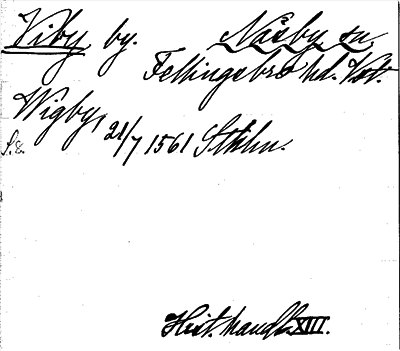 Viby by. Näsby sn
Fellingsbro hd. Vstm.
Wigby, 21/7 1561 Sthlm.
S. 8.
Hist. handl. XIII.